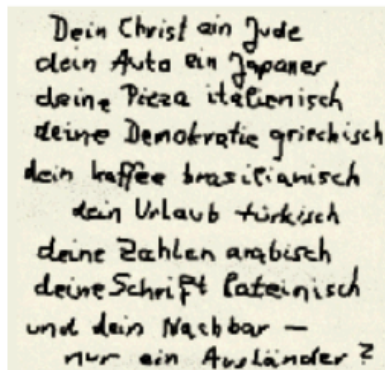 Dein Christ ein Jude
dein Auto ein Japaner
deine Pizza italienisch
deine Demokratie griechisch
dein Kaffee brasilianisch
dein Urlaub türkisch
deine Zahlen arabisch
deine Schrift lateinisch
und dein Nachbar –
nur ein Ausländer?